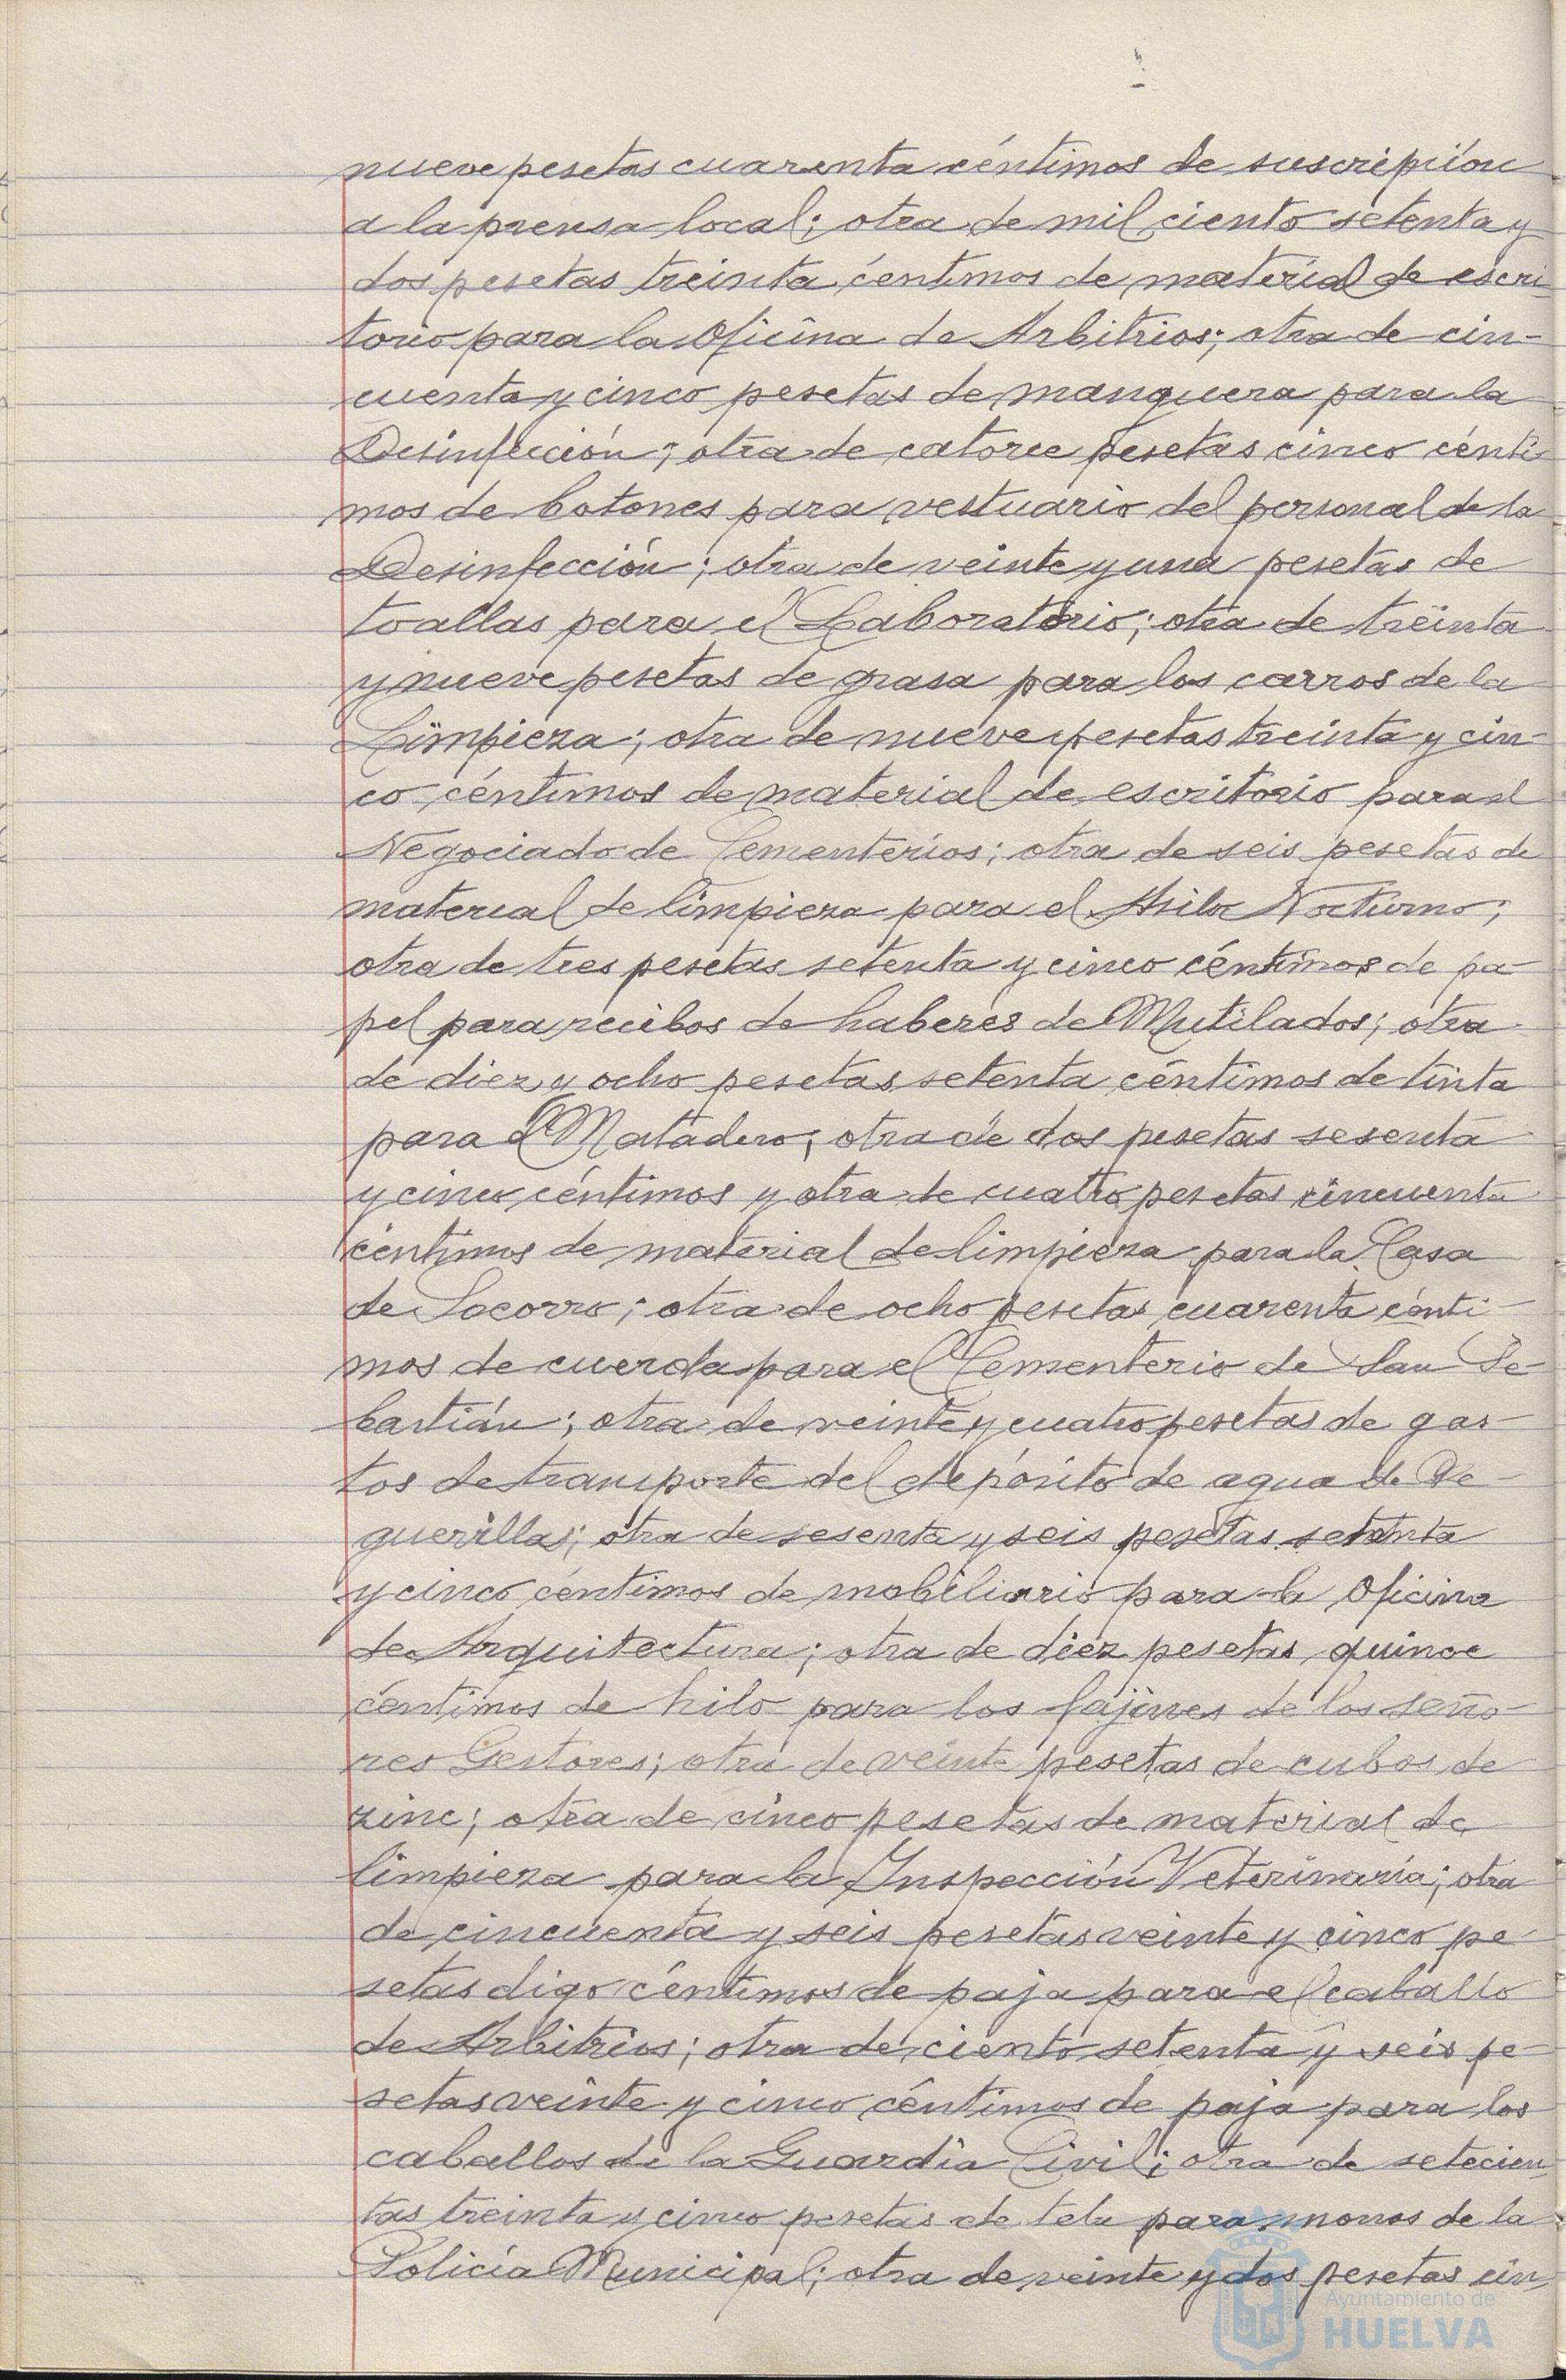 nueve pesetas cuarenta céntimos de suscripción
a la prensa local; otra de mil ciento setenta y
dos pesetas treinta céntimos de material de escri-
torio para la Oficina de Arbitrios; otra de cin-
cuenta y cinco pesetas de manguera para la
Desinfección; otra de catorce pesetas cinco cénti-
mos de botones para vestuario del personal de la
Desinfección; otra de veinte y una pesetas de
toallas para el Laboratorio; otra de treinta
y nueve pesetas de grasa para los carros de la
Limpieza; otra de nueve pesetas treinta y cin-
co céntimos de material de escritorio para el
Negociado de Cementerios; otra de seis pesetas de
material de limpieza para el Asilo Nocturno;
otra de tres pesetas setenta y cinco céntimos de pa-
pel para recibos de haberes de Mutilados; otra
de diez y ocho pesetas setenta céntimos de tinta
para el Matadero; otra de dos pesetas sesenta
y cinco céntimos y otra de cuatro pesetas cincuenta
céntimos de material de limpieza para la Casa
de Socorro; otra de ocho pesetas cuarenta cénti-
mos de cuerda para el Cementerio de San Se-
bastián; otra de veinte y cuatro pesetas de gas-
tos de transporte del depósito de agua de Pe-
guerillas; otra de sesenta y seis pesetas setenta
y cinco céntimos de mobiliario para la Oficina
de Arquitectura; otra de diez pesetas quince
céntimos de hilo para los fajines de los seño-
res Gestores; otra de veinte pesetas de cubos de
zinc; otra de cinco pesetas de material de
limpieza para la Inspección Veterinaria; otra
de cincuenta y seis pesetas veinte y cinco pe-
setas digo céntimos de paja para el caballo
de Arbitrios; otra de ciento setenta y seis pe-
setas veinte y cinco céntimos de paja para los
caballos de la Guardia Civil; otra de setecien-
tas treinta y cinco pesetas de tela para monos de la
Policía Municipal; otra de veinte y dos pesetas cin-
Ayuntamiento de
HUELVA